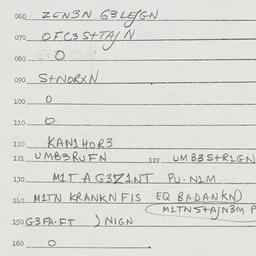 060 ZEN3N G3LEJGN
070 OFC3S+TAJN
080 O
090 S+NORXN
100 O
110 O
120 KAN1HOR3
121 UMB3RUFN 122 UMB3S+R1GN
130 M1T A G3Z1NT PU.N1M
140 M1TN KRANKNFIS EQ BADANKN)
M1TNS+AJN3M P
150 G3FA.FT )NIGN
160 O